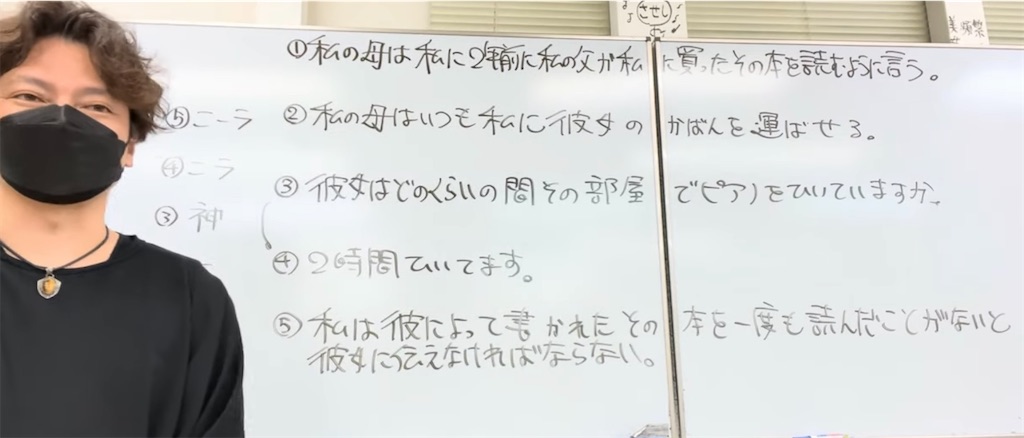 させし
①私の母は私に2年前に私の父が私に買ったその本を読むように言う。
②私の母はいつも私に彼女のかばんを運ばせる。
③彼女はどのくらいの間その部屋でピアノをひいていますか。
④2時間ひいてます。
⑤私は彼によって書かれたその本を一度も読んだことがないと
彼女に伝えなければならない。
⑤こーラ
④ニラ
③神